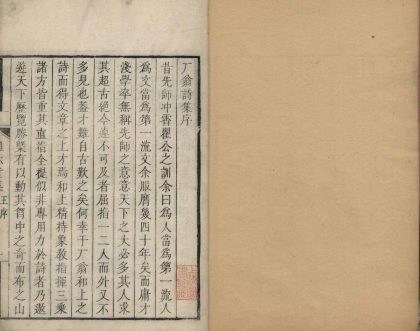 厂翁詩集序
昔先師沖香瞿公之訓余曰為人當為第一流人
為文當為第一流文余服膺幾四十年矣而庸才
淺學卒無稱先師之意意天下之大必多其人求
其超古絕今遙不可及者屈指一二人而外又不
多見也葢才難自古歎之矣何幸于厂翁和上之
詩而得文章之上才焉和上精持象教指揮三乘
諸方皆重其直指全提似非專用力於詩者乃遨
遊天下歷覽勝槩有以動其胷中之奇而布之山
王序